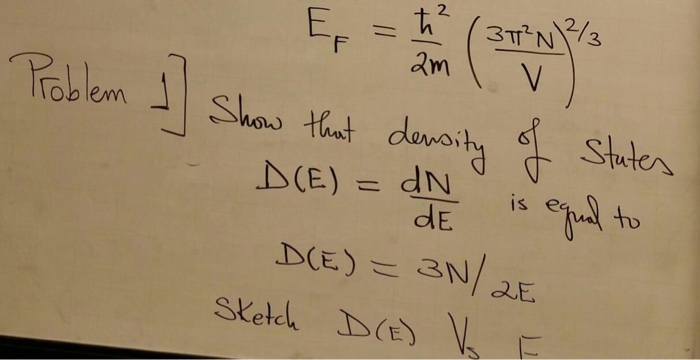 E_F = ħ²/2m (3π²N/V)^2/3
Problem 1] Show that density of States
D(E) = dN/dE is equal to
D(E) = 3N/2E
Sketch D(E) Vs E